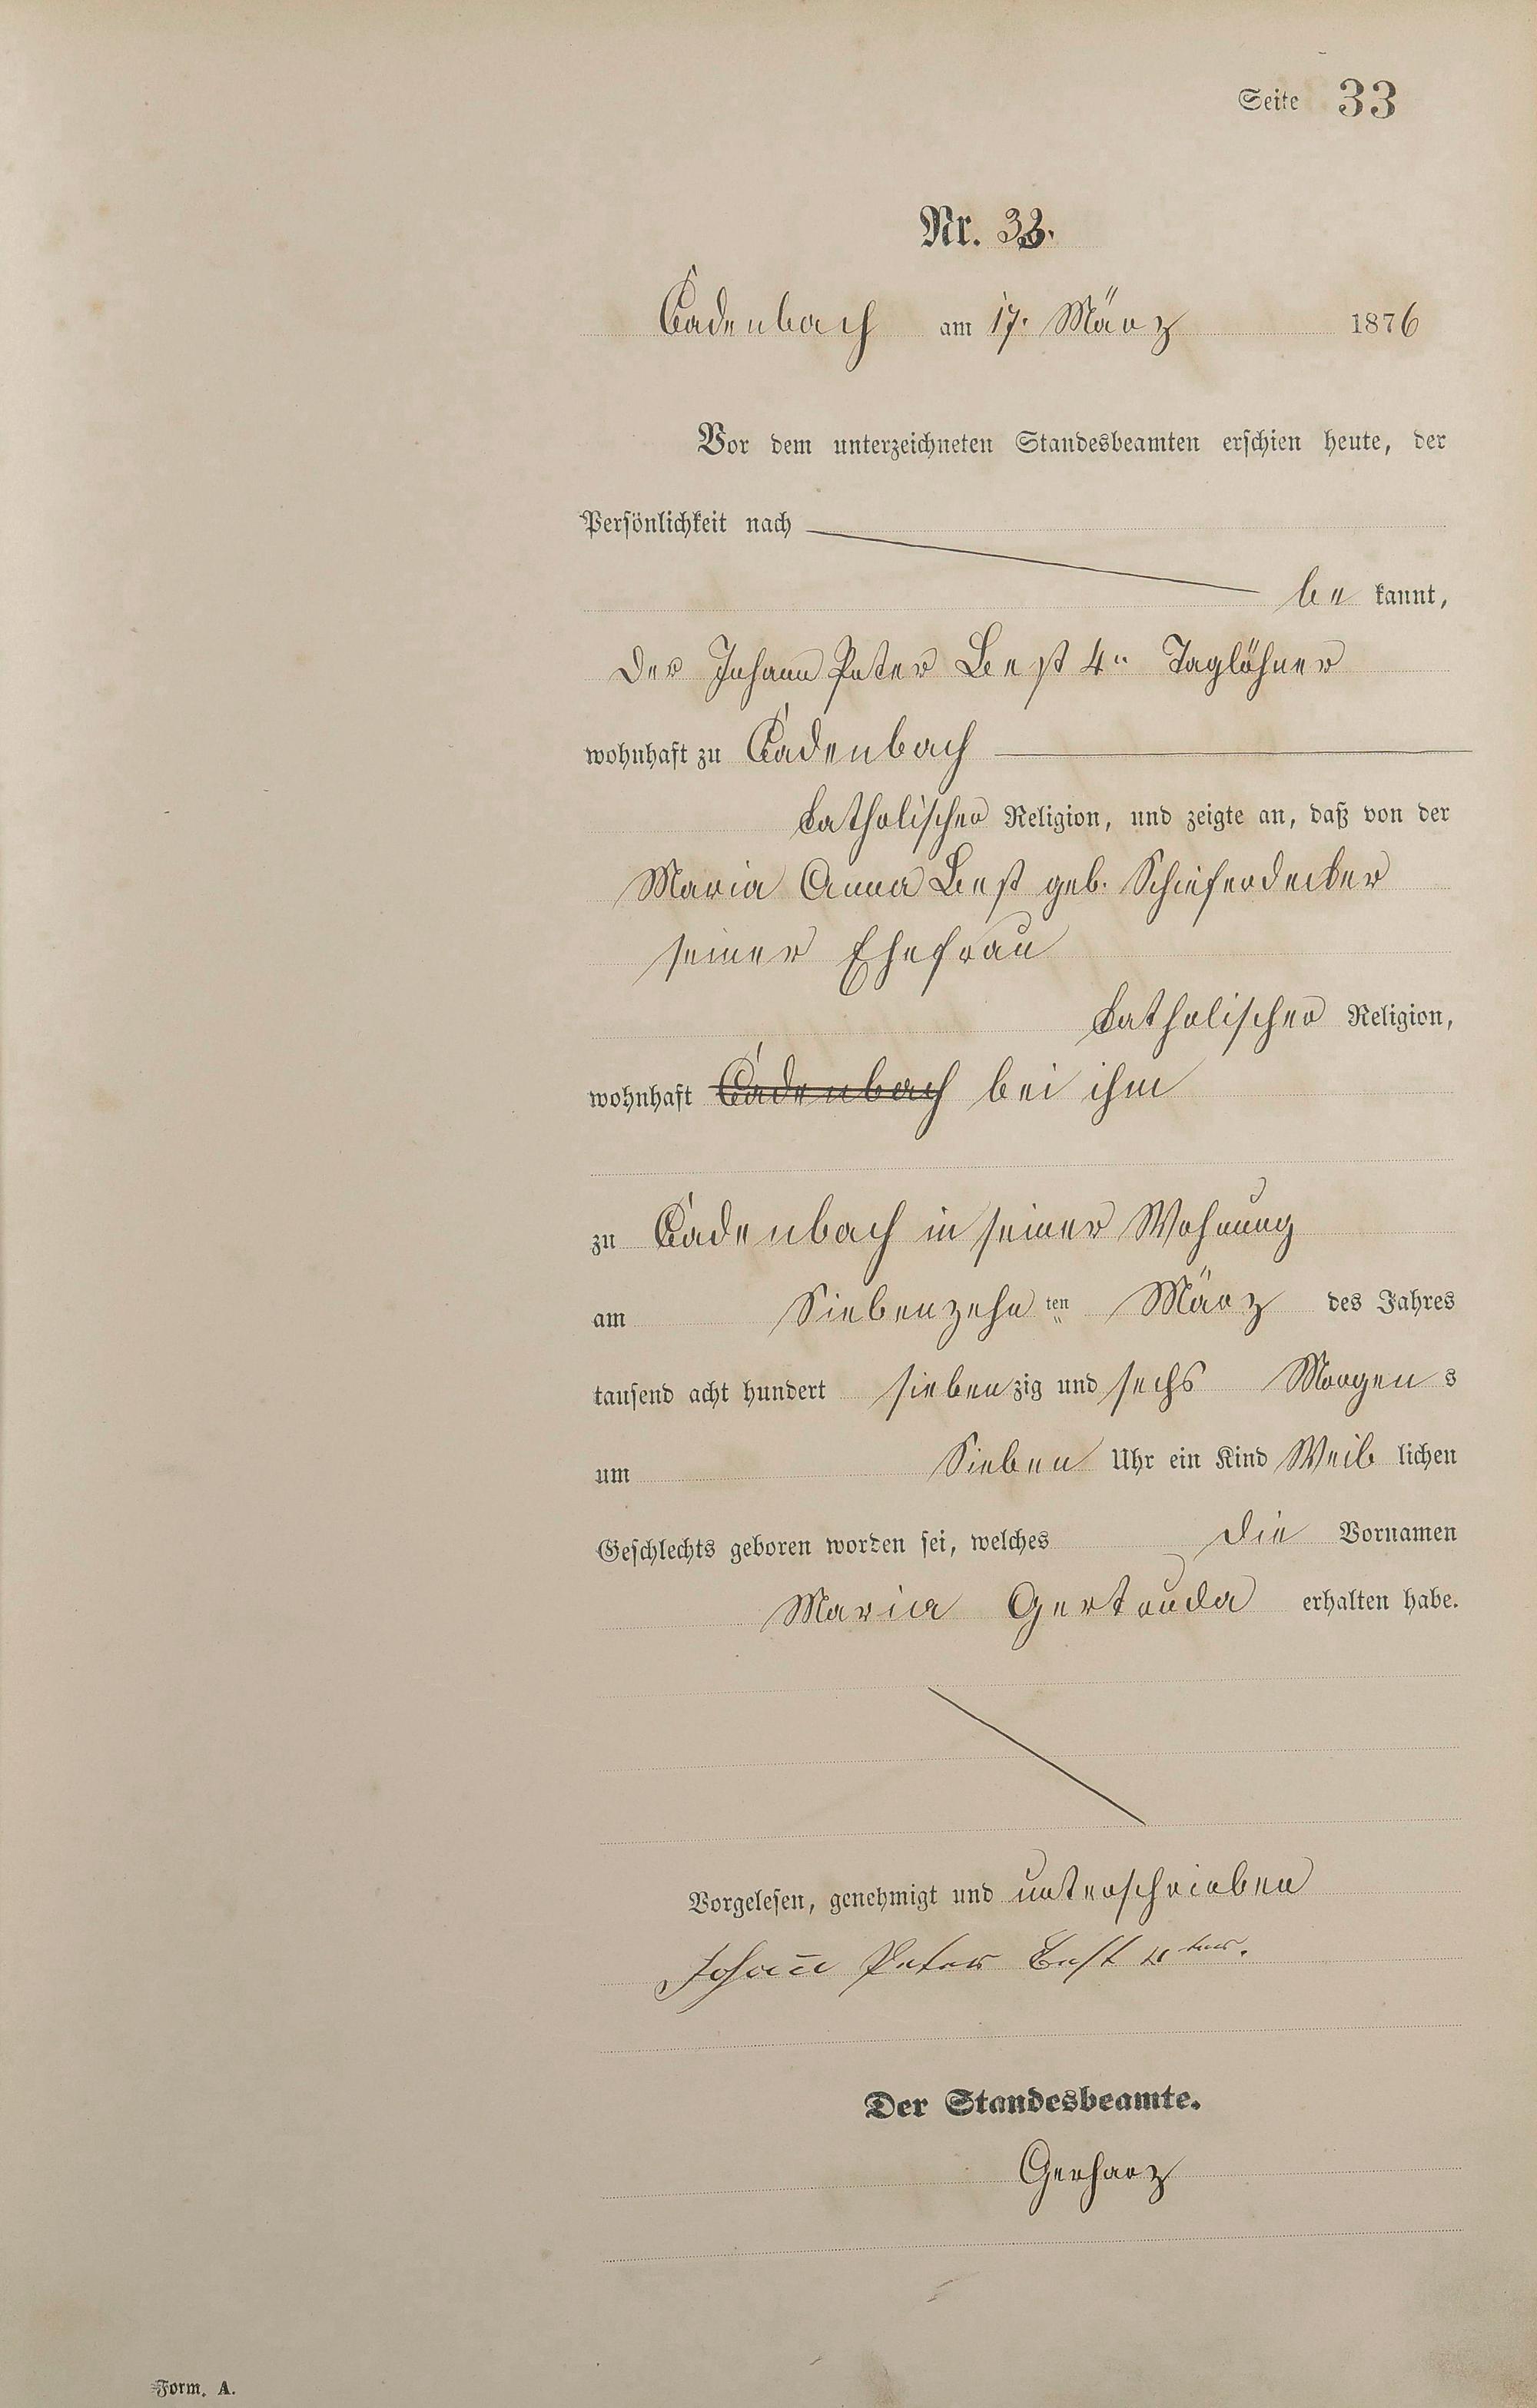 Seite 33
Nr. 33.
Cadenbach am 17. März 1876
Vor dem unterzeichneten Standesbeamten erschien heute, der
Persönlichkeit nach
be kannt,
Der Johann Peter Best 4r Taglöhner
wohnhaft zu Cadenbach
katholischer Religion, und zeigte an, daß von der
Maria Anna Best geb. Schieferdecker
seiner Ehefrau
katholischer Religion,
wohnhaft Cadenbach bei ihm
zu Cadenbach in seiner Wohnung
am Siebenzehn ten März des Jahres
tausend acht hundert siebenzig und sechs Morgen s
um Sieben Uhr ein Kind Weib lichen
Geschlechts geboren worden sei, welches die Vornamen
Maria Gertruda erhalten habe.
Vorgelesen, genehmigt und unterschrieben
Johann Peter Best 4ter.
Der Standesbeamte.
Gerharz
Form. A.